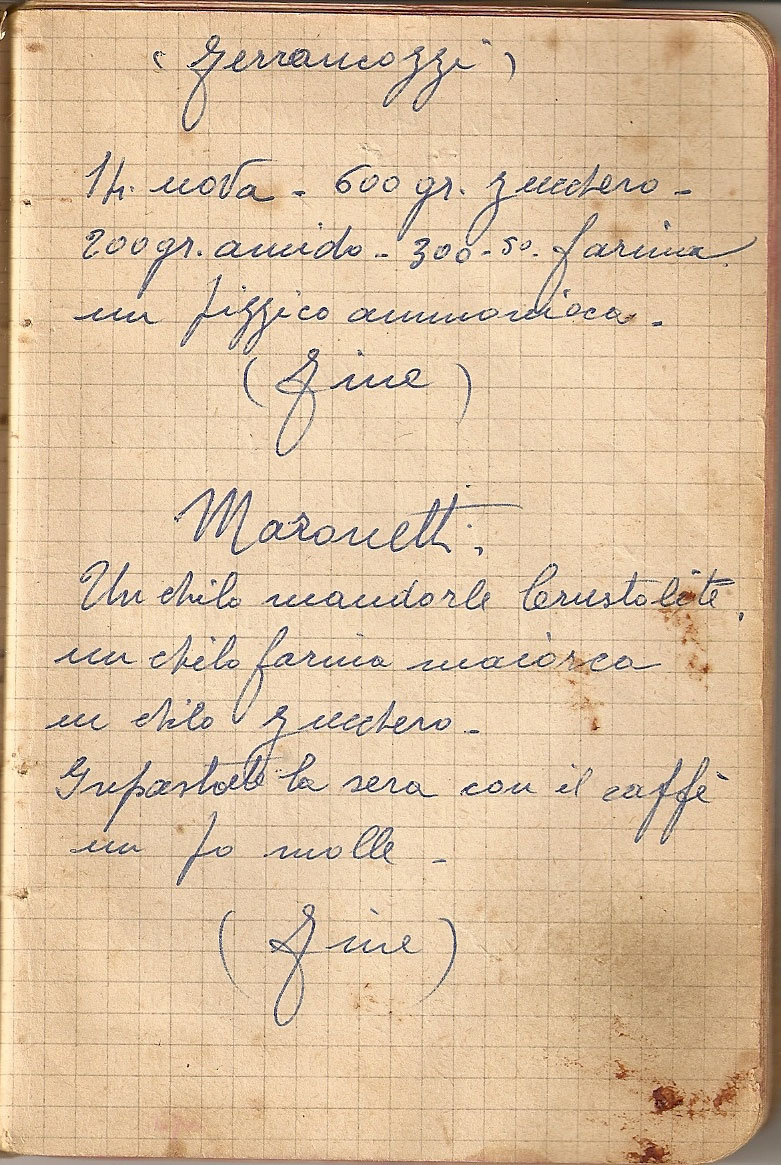 ( Ferrancozzi )
14. uova - 600 gr. zucchero -
200 gr. amido - 300-50. farina
un pizzico ammoniaca -
( Fine )
Maronetti.
Un chilo mandorle brustolite,
un chilo farina maiorca
un chilo zucchero -
Inpastate la sera con il caffè
un po molle -
( Fine )